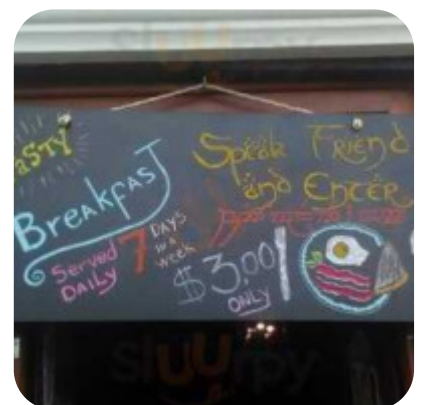 asty
Breakfast
Served
Daily
7
Days
in a
week
Speak Friend
and Enter
$3.00
only
sluurpy